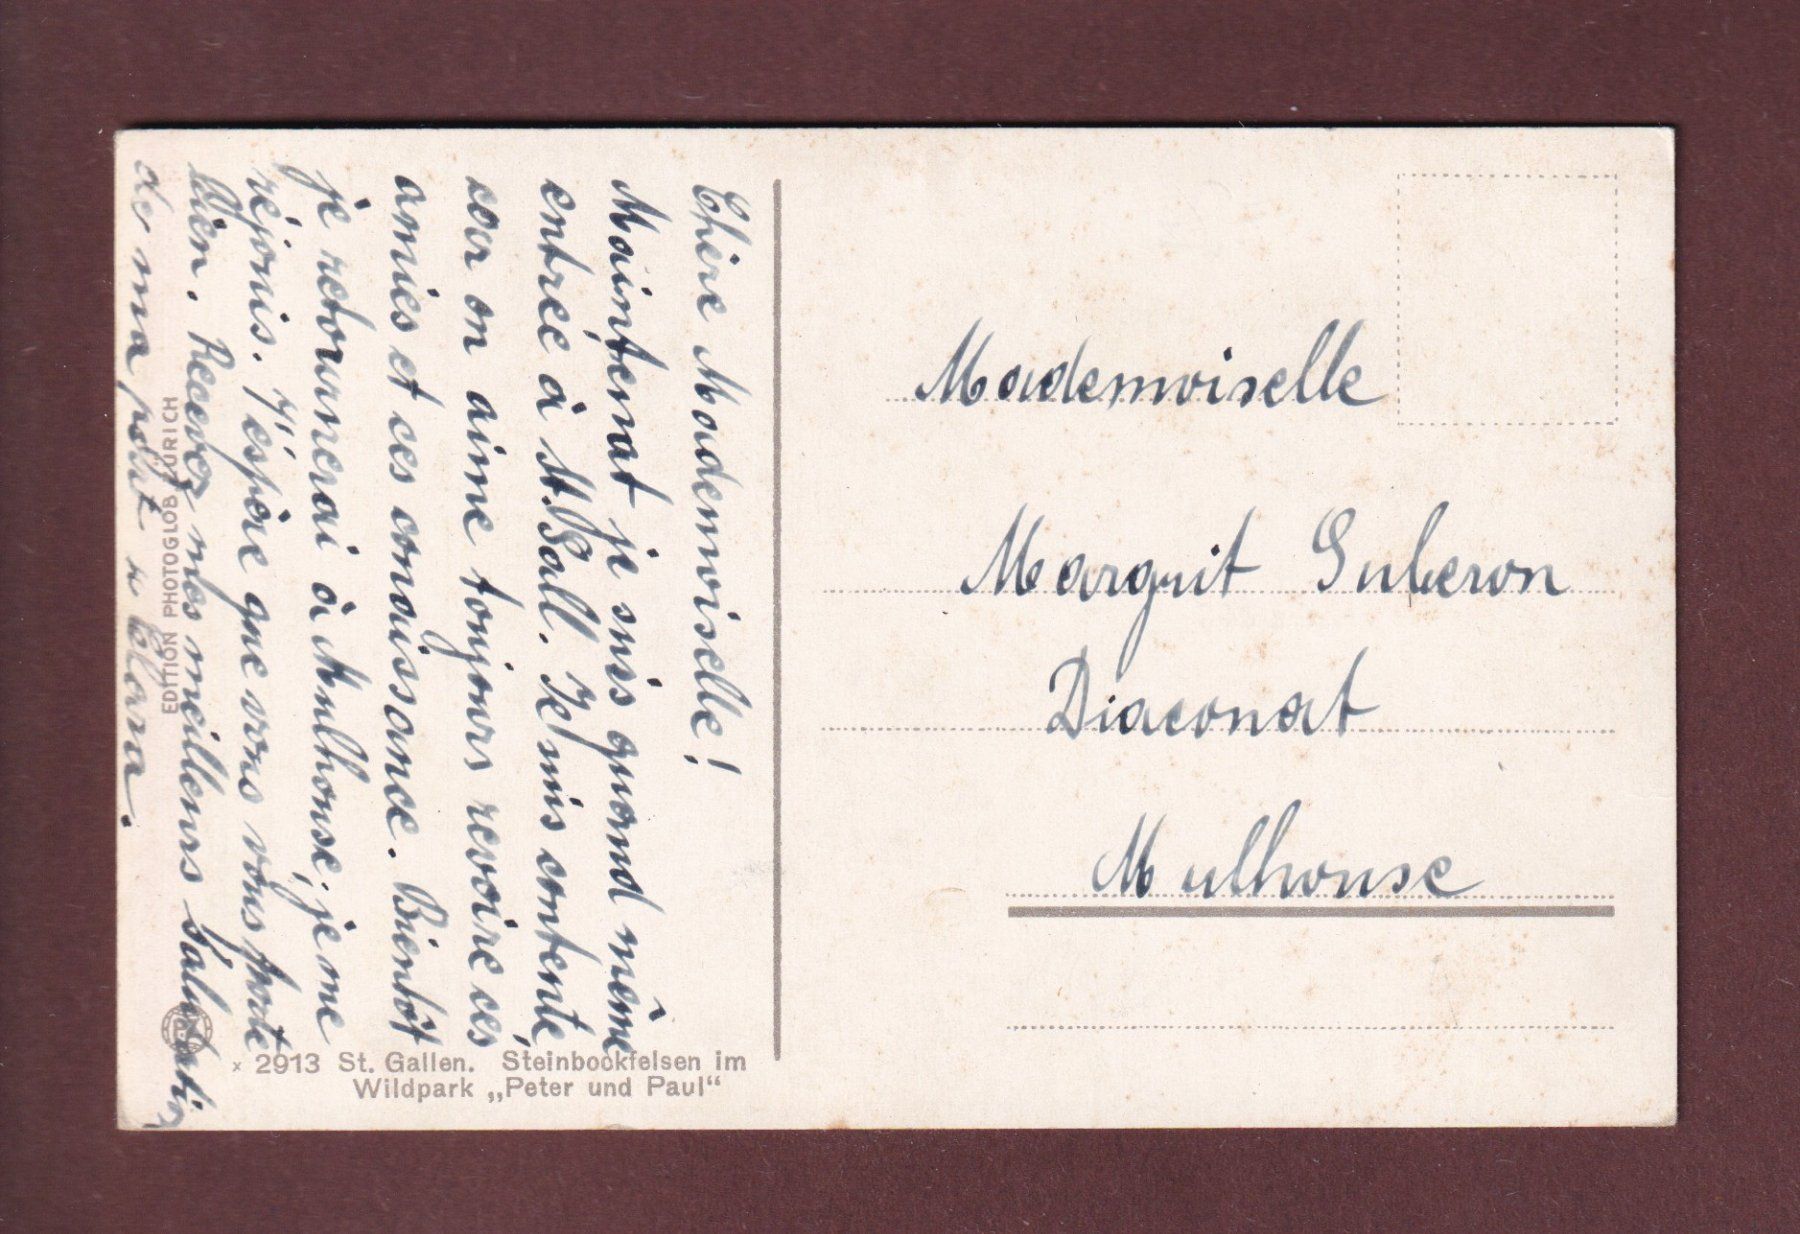 Chère Mademoiselle!
Maintenat je suis quand même
entrée à St. Gall. Je suis contente,
car on aime toujours revoire ces
amies et ces conaissance. Bientôt
je retournerai à Mulhouse, je me
réjouis. J'éspère que vous vous porte
bien. Recevez mes meilleurs Salutatio
de ma part Clara.
EDITION PHOTOGLOB ZÜRICH
x 2913 St. Gallen. Steinbockfelsen im
Wildpark „Peter und Paul“
Mademoiselle
Margrit
Diaconat
Mulhouse